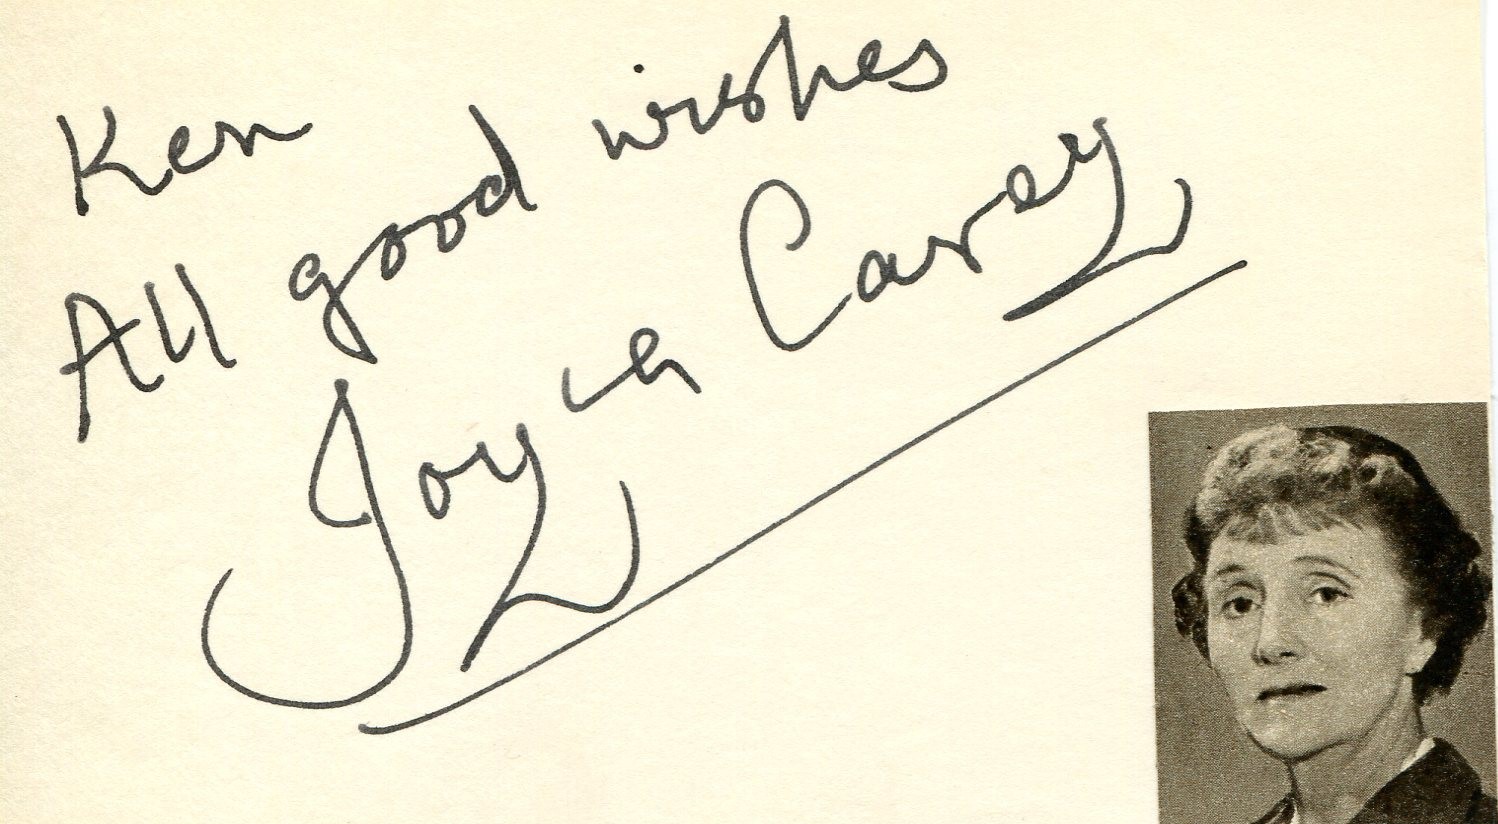 Ken
All good wishes
Joyce Carey